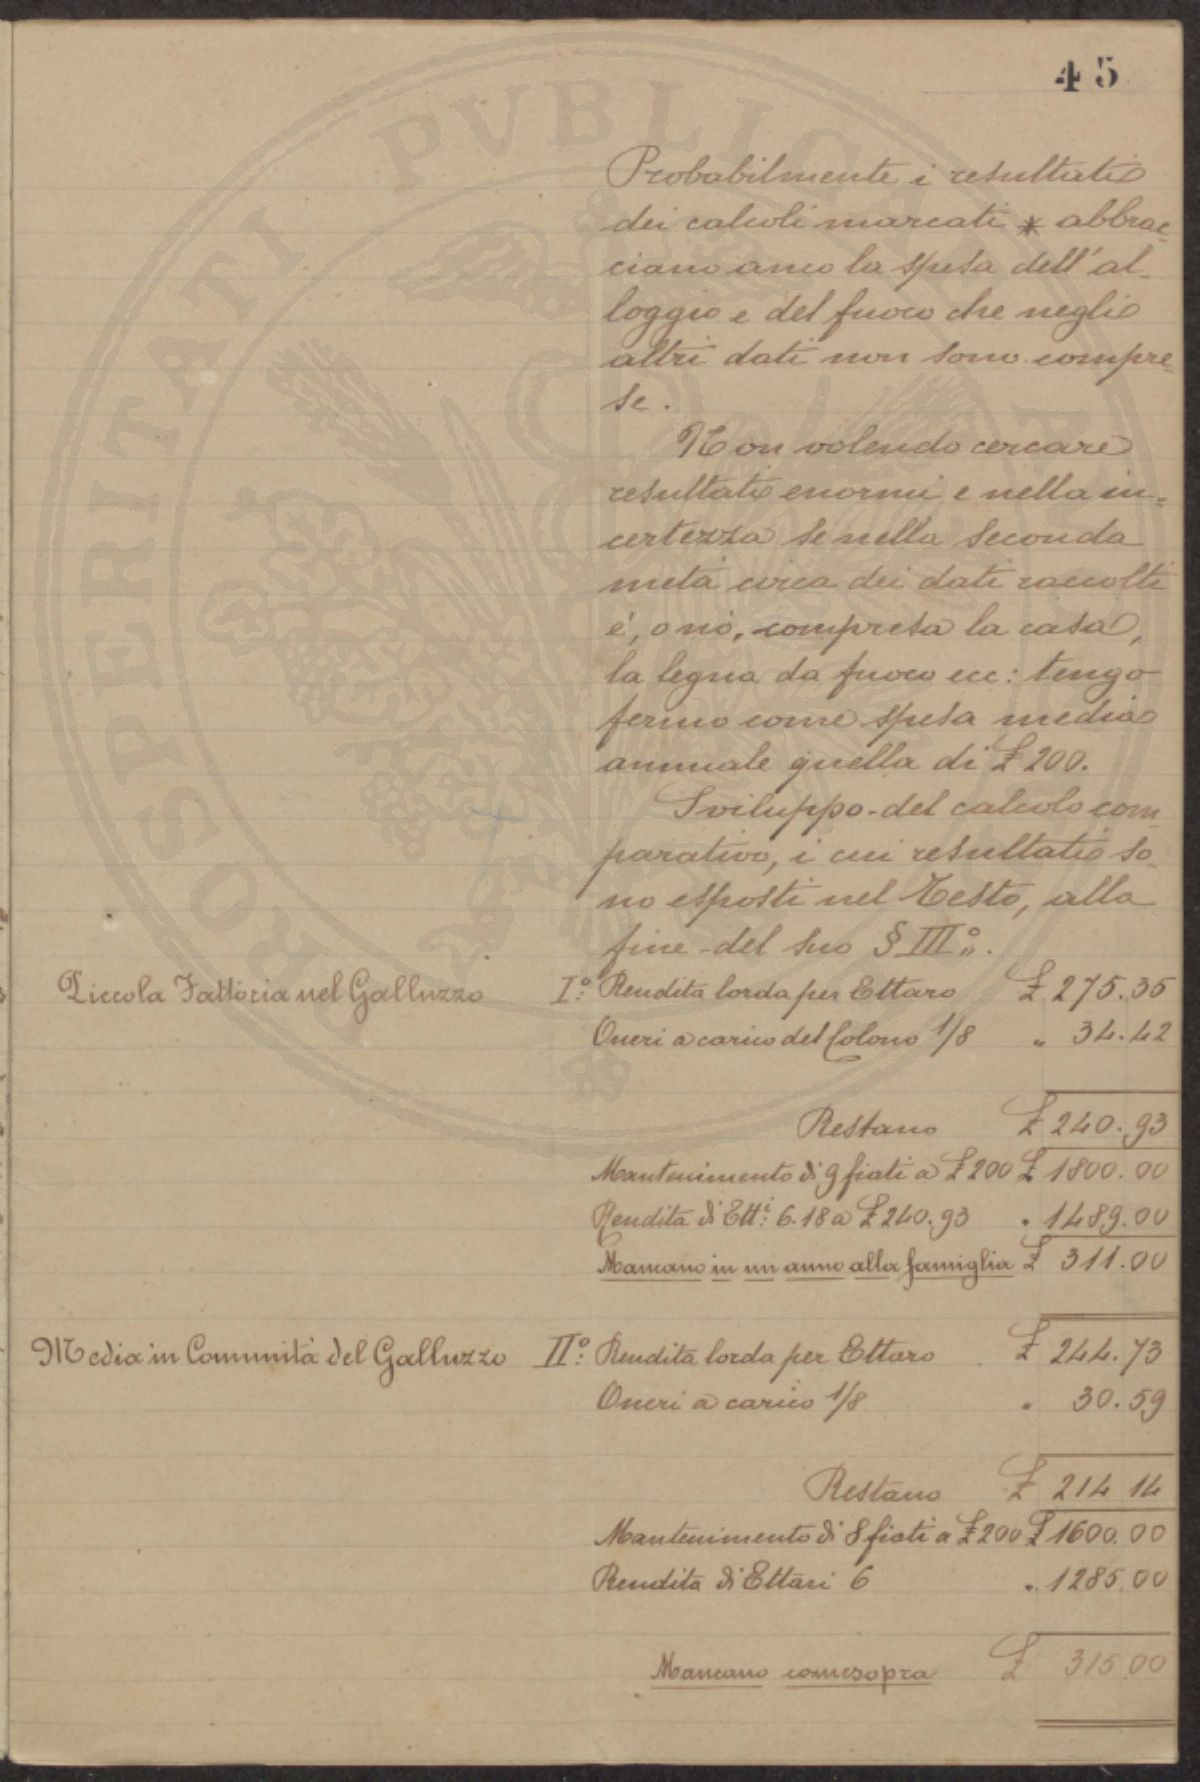 45
Probabilmente i resultati
dei calcoli marcati * abbrac-
ciano anco la spesa dell'al-
loggio e del fuoco che negli
altri dati non sono compre-
se.
Non volendo cercare
resultati enormi e nella in-
certezza se nella seconda
metà circa dei dati raccolti
é, o nò, compresa la casa,
la legna da fuoco ecc: tengo
fermo come spesa media
annuale quella di £ 200.
Sviluppo del calcolo com-
parativo, i cui resultati so-
no esposti nel Testo, alla
fine del suo § III°.
Piccola Fattoria nel Galluzzo I°: Rendita lorda per Ettaro £ 275.35
Oneri a carico del Colono 1/8 " 34.42
Restano £ 240.93
Mantenimento di 9 fiati a £ 200 £ 1800.00
Rendita di Ett:i 6.18 a £ 240.93 " 1489.00
Mancano in un anno alla famiglia £ 311.00
Media in Comunità del Galluzzo II°: Rendita lorda per Ettaro £ 244.73
Oneri a carico 1/8 " 30.59
Restano £ 214 14
Mantenimento di 8 fiati a £ 200 £ 1600.00
Rendita di Ettari 6 " 1285.00
Mancano come sopra £ 315.00
PROSPERITATI PVBLICAE